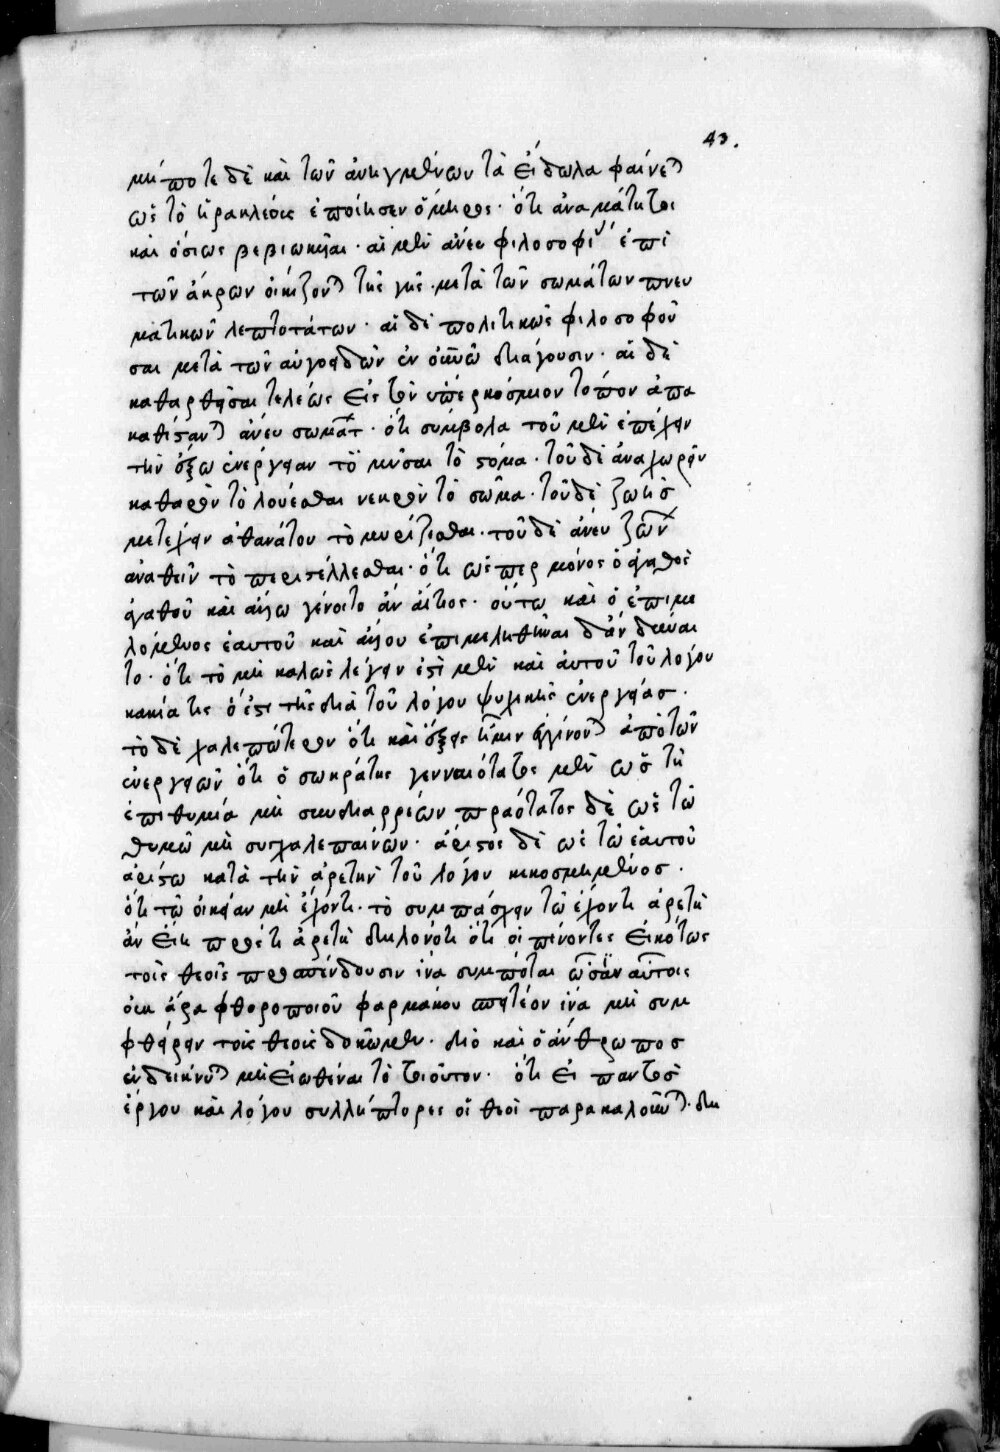 43.
μήποτε δὲ καὶ τῶν ἀνηγμένων τὰ εἴδωλα φαίνεται
ὡς τὸ ἡρακλέους ἐποίησεν ὅμηρος· ὅτι ἀναμάτητοι
καὶ ὁσίως βεβιωκυῖαι· αἱ μὲν ἄνευ φιλοσοφίας ἐπὶ
τῶν ἄκρων οἰκίζονται τῆς γῆς μετὰ τῶν σωμάτων πνευ
ματικῶν λεπτοτάτων· αἱ δὲ πολιτικῶς φιλοσοφοῦ
σαι μετὰ τῶν αὐγοειδῶν ἐν οὐρανῶ διάγουσιν· αἱ δὲ
καθαρθεῖσαι τελέως εἰς τὸν ὑπερκόσμιον τόπον ἀπο
καθίστανται ἄνευ σωμάτων· ὅτι σύμβολα τοῦ μὲν ἐπέχειν
τὴν ἔξω ἐνέργειαν τὸ μῦσαι τὸ στόμα· τοῦ δὲ ἀναχωρεῖν
καθαρὸν τὸ λούεσθαι νεκρὸν τὸ σῶμα· τοῦ δὲ ζωῆς
μετέχειν ἀθανάτου τὸ μυρίζεσθαι· τοῦ δὲ ἄνευ ζωνῶν
ἀναθεῖν τὸ περιστέλλεσθαι· ὅτι ὥσπερ μόνος ὁ ἀγαθὸς
ἀγαθοῦ καὶ ἄλλω γένοιτο ἂν αἴτιος· οὕτω καὶ ὁ ἐπιμε
λόμενος ἑαυτοῦ καὶ ἄλλου ἐπιμεληθῆναι δἂν δύναι
το· ὅτι τὸ μὴ καλῶς λέγειν ἐστὶ μὲν καὶ αὐτοῦ τοῦ λόγου
κακία τις ὅ ἐστι τῆς διὰ τοῦ λόγου ψυχικῆς ἐνεργείας·
τὸ δὲ χαλεπώτερον ὅτι καὶ ἕξεις ἡμῖν ἐγγίνονται ἀπὸ τῶν
ἐνεργειῶν ὅτι ὁ σωκράτης γενναιότατος μὲν ὡς τῆ
ἐπιθυμία μὴ συνδιαρρέων πραότατος δὲ ὡς τῶ
θυμῶ μὴ συγχαλεπαίνων· ἄριστος δὲ ὡς τῶ ἑαυτοῦ
ἀρίστω κατὰ τὴν ἀρετὴν τοῦ λόγου κεκοσμημένος·
ὅτι τῶ οἰκείαν μὴ ἔχοντι· τὸ συμπάσχειν τῶ ἔχοντι ἀρετὴ
ἂν εἴη πρὸς τι ἀρετὴ δηλονότι ὅτι οἱ πίνοντες εἰκότως
τοῖς θεοῖς προσπένδουσιν ἵνα συμπόται ὦσιν αὐτοῖς
οὐκ ἄρα φθοροποιοῦ φαρμάκου ποιητέον ἵνα μὴ συμ
φθείρειν τοῖς θεοῖς δοκῶμεν· διὸ καὶ ὁ ἄνθρωπος
ἐνδείκνυται μὴ εἰωθέναι τὸ τοιοῦτον· ὅτι εἰ παντὸς
ἔργου καὶ λόγου συλλήπτορες οἱ θεοὶ παρακαλοῦνται· δη